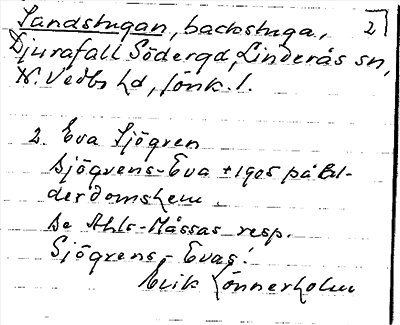 Sandstugan, backstuga, 2
Djurafall Södergd, Linderås sn,
N. Vedbo hd, Jönk. l.
2. Eva Sjögren
Sjögrens-Eva + 1905 på Ål-
derdomshem.
Se Ahls-Måssas resp.
Sjögrens-Evas!
Erik Lönnerholm